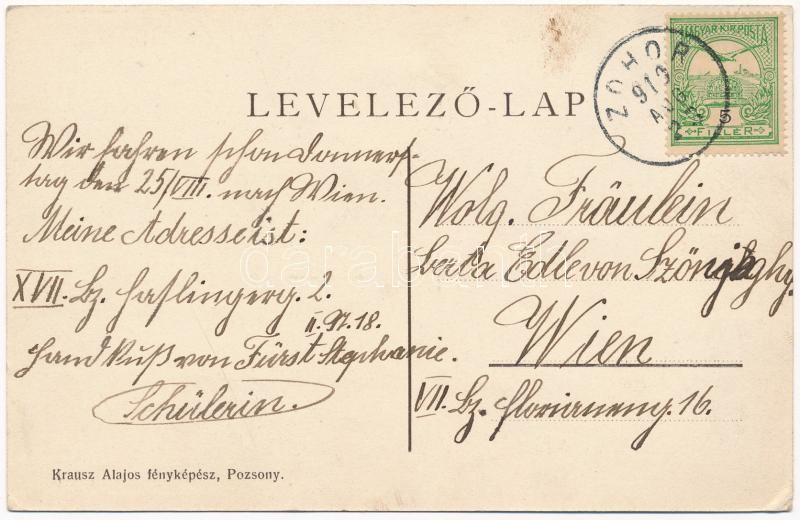 LEVELEZŐ-LAP
ZOHOR
913
AUG
MAGYAR KIR. POSTA
FILLER
Wir fahren schon Donners-
tag den 25/VIII. nach Wien.
Meine Adresse ist:
XVII. Bz. Haslingerg. 2.
II. St. 18.
Handkuß von Fürst Stephanie.
Schülerin.
Wolg. Fräulein
Berta Edle von
Wien
VII. Bz. Florianeng. 16.
Krausz Alajos fényképész, Pozsony.
darabanth